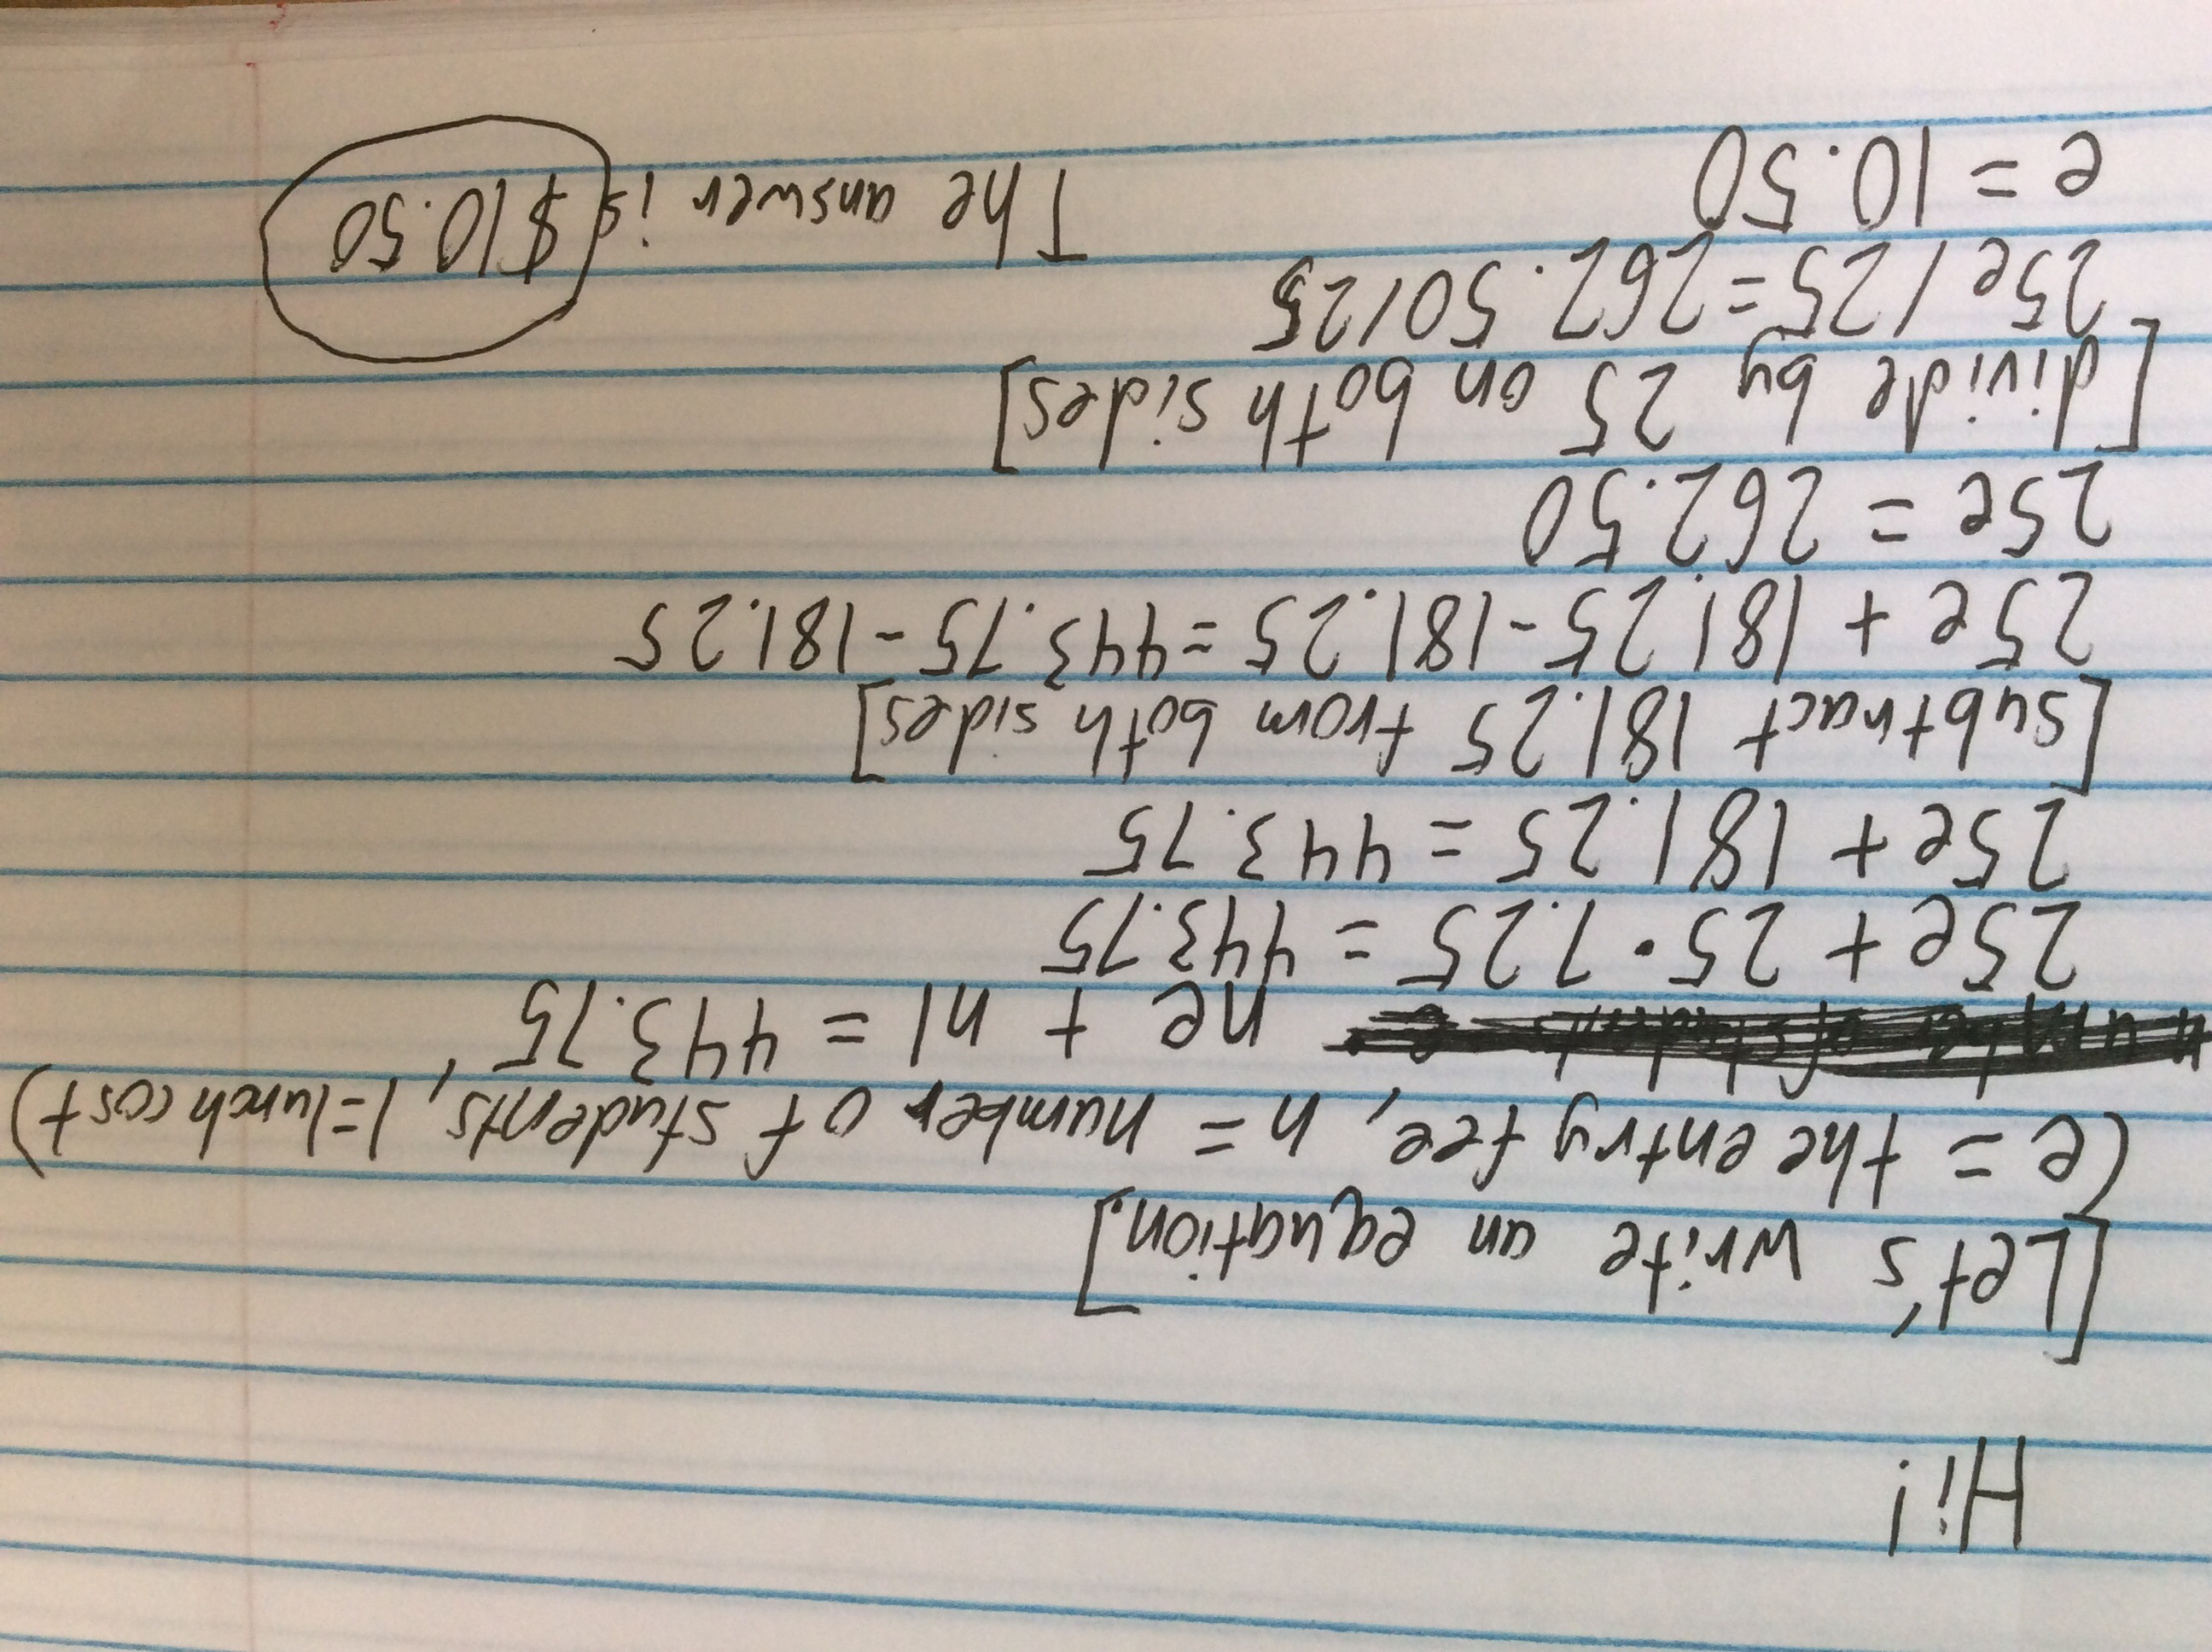 Hi!
[Let's write an equation.]
(e = the entry fee, n = number of students, l=lunch cost)
ne + nl = 443.75
25e + 25 · 7.25 = 443.75
25e + 181.25 = 443.75
[subtract 181.25 from both sides]
25e + 181.25 - 181.25 = 443.75 - 181.25
25e = 262.50
[divide by 25 on both sides]
25e/25 = 262.50/25
e = 10.50
The answer is $10.50